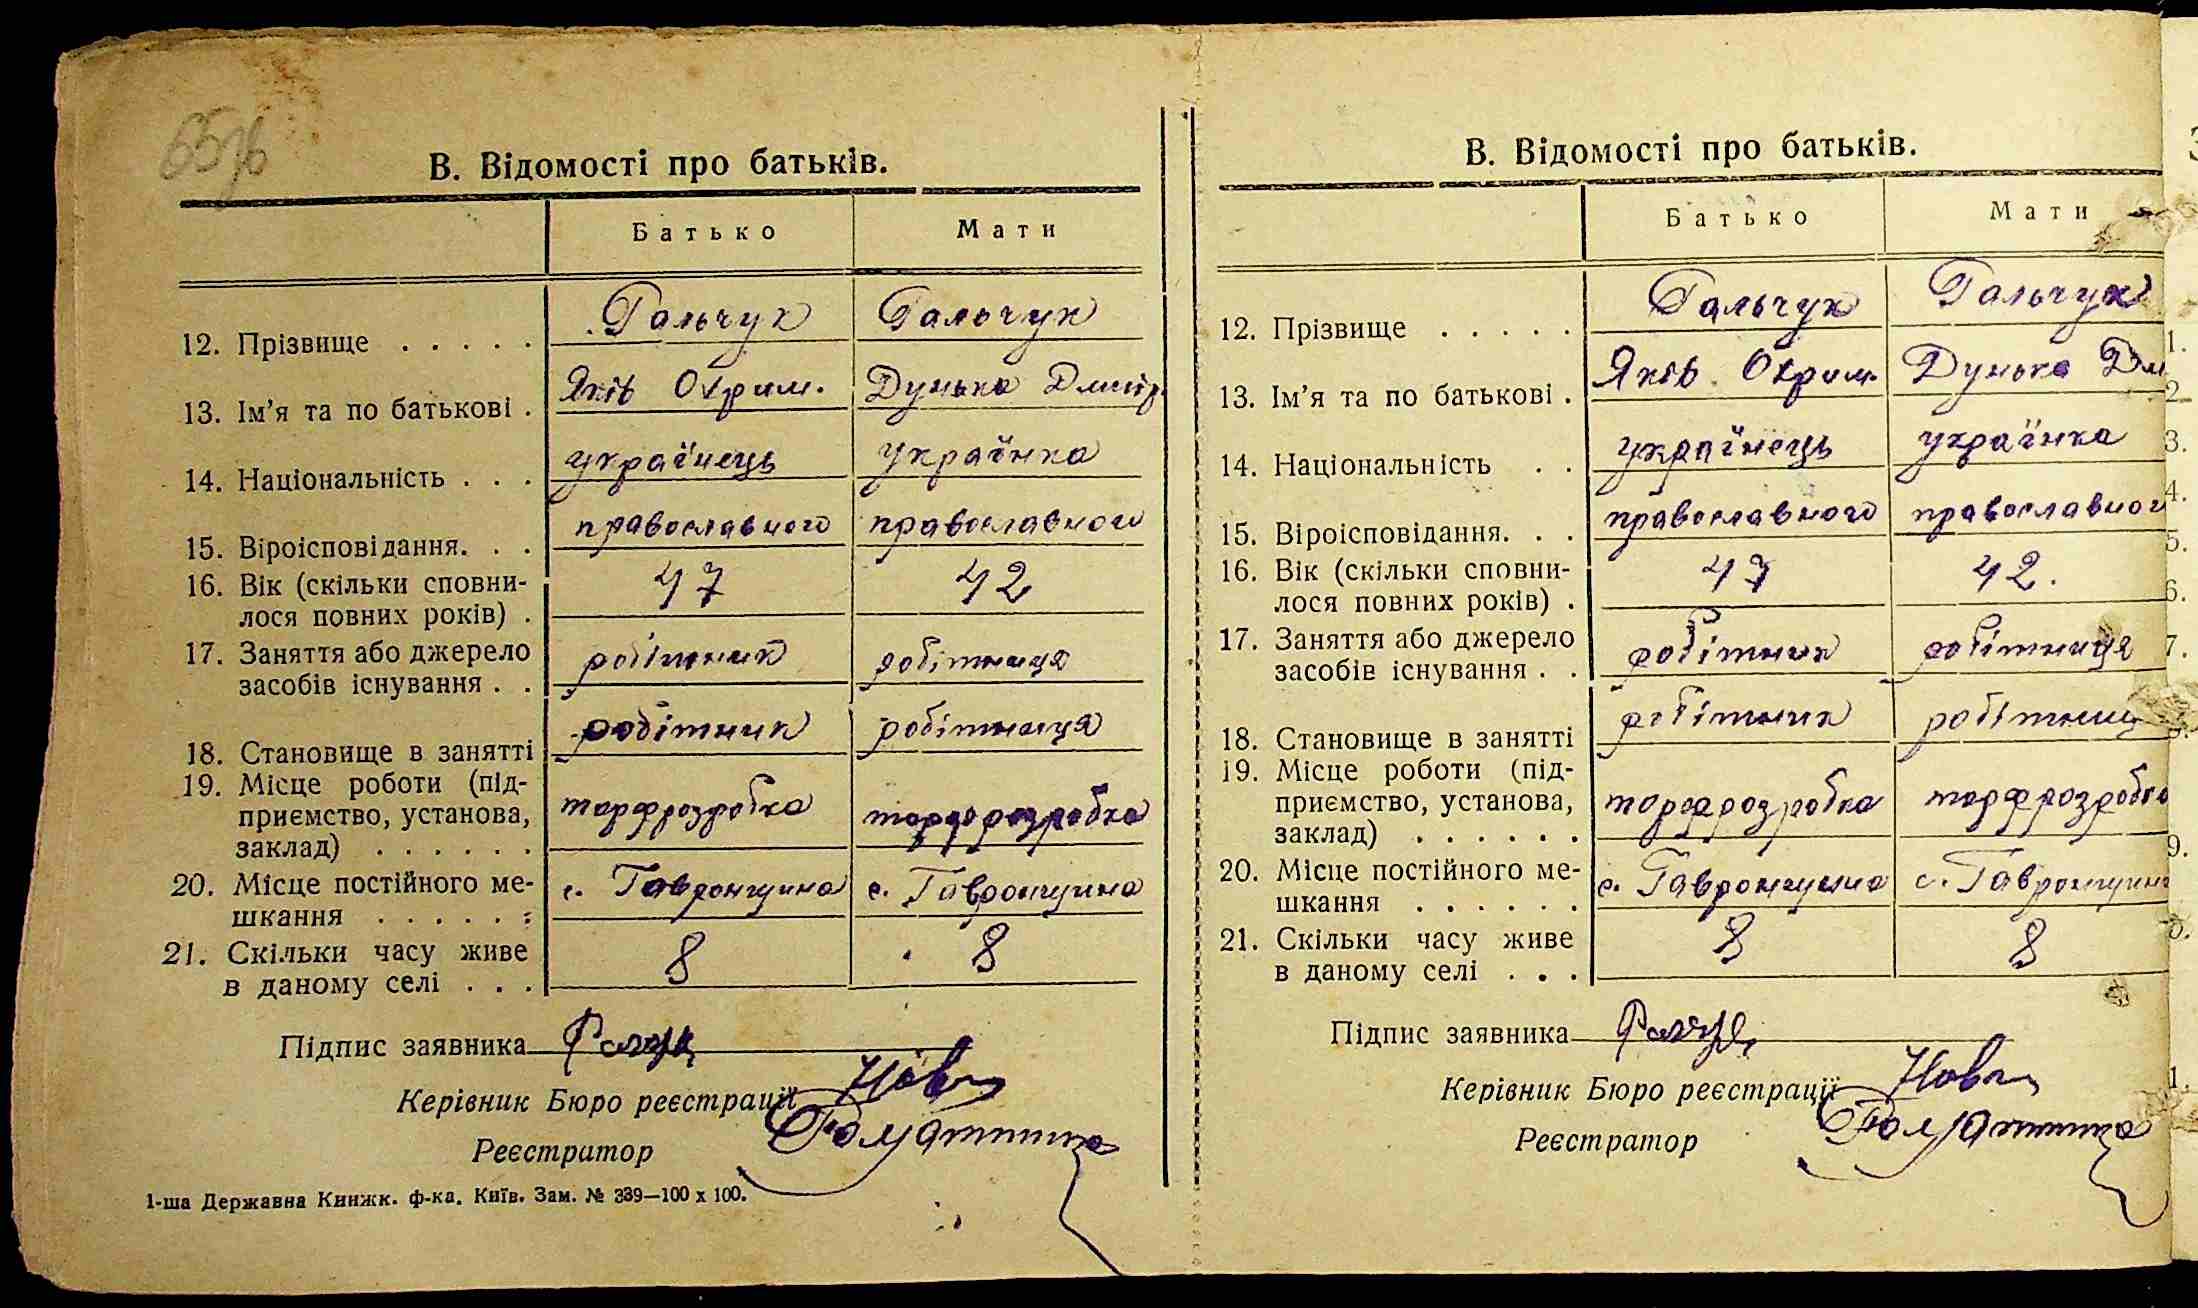 В. Відомості про батьків.
Батько Мати
12. Прізвище . . . . . Гальчук Гальчук
13. Ім'я та по батькові . Яків Охрим. Дунька Дмитр.
14. Національність . . . українець українка
15. Віроісповідання. . . православного православного
16. Вік (скільки сповни-
лося повних років) . 47 42
17. Заняття або джерело
засобів існування . . робітник робітниця
18. Становище в занятті робітник робітниця
19. Місце роботи (під-
приємство, установа,
заклад) . . . . . . торфрозробка торфрозробка
20. Місце постійного ме-
шкання . . . . . : с. Гавронщина с. Гавронщина
21. Скільки часу живе
в даному селі . . . 8 8
Підпис заявника
Керівник Бюро реєстрації
Реєстратор
1-ша Державна Книжк. ф-ка. Київ. Зам. № 339—100 х 100.
В. Відомості про батьків.
Батько Мати
12. Прізвище . . . . . Гальчук Гальчук
13. Ім'я та по батькові . Яків Охрим. Дунька Дм
14. Національність . . українець українка
15. Віроісповідання. . . православного православног
16. Вік (скільки сповни-
лося повних років) . 47 42.
17. Заняття або джерело
засобів існування . . робітник робітниця
18. Становище в занятті робітник робітниц
19. Місце роботи (під-
приємство, установа,
заклад) . . . . . . торфрозробка торфрозробка
20. Місце постійного ме-
шкання . . . . . . с. Гавронщина с. Гавронщин
21. Скільки часу живе
в даному селі . . . 8 8
Підпис заявника
Керівник Бюро реєстрації
Реєстратор